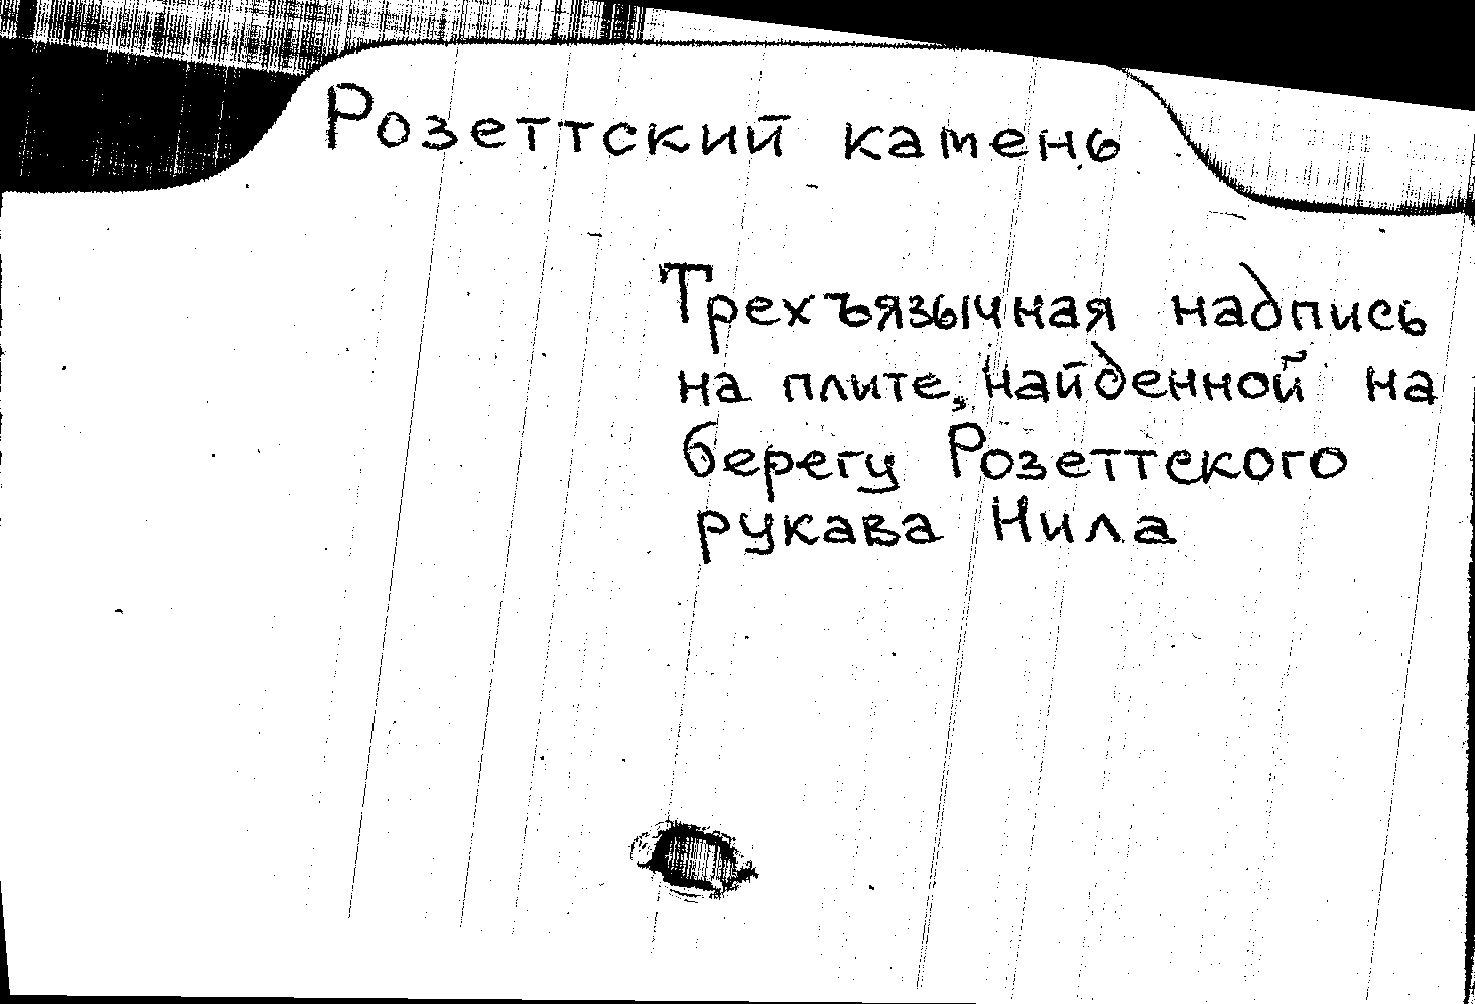 Розеттский камень
Трехъязычная надпись
на плите, найденной на
берегу Розеттского
рукава Нила